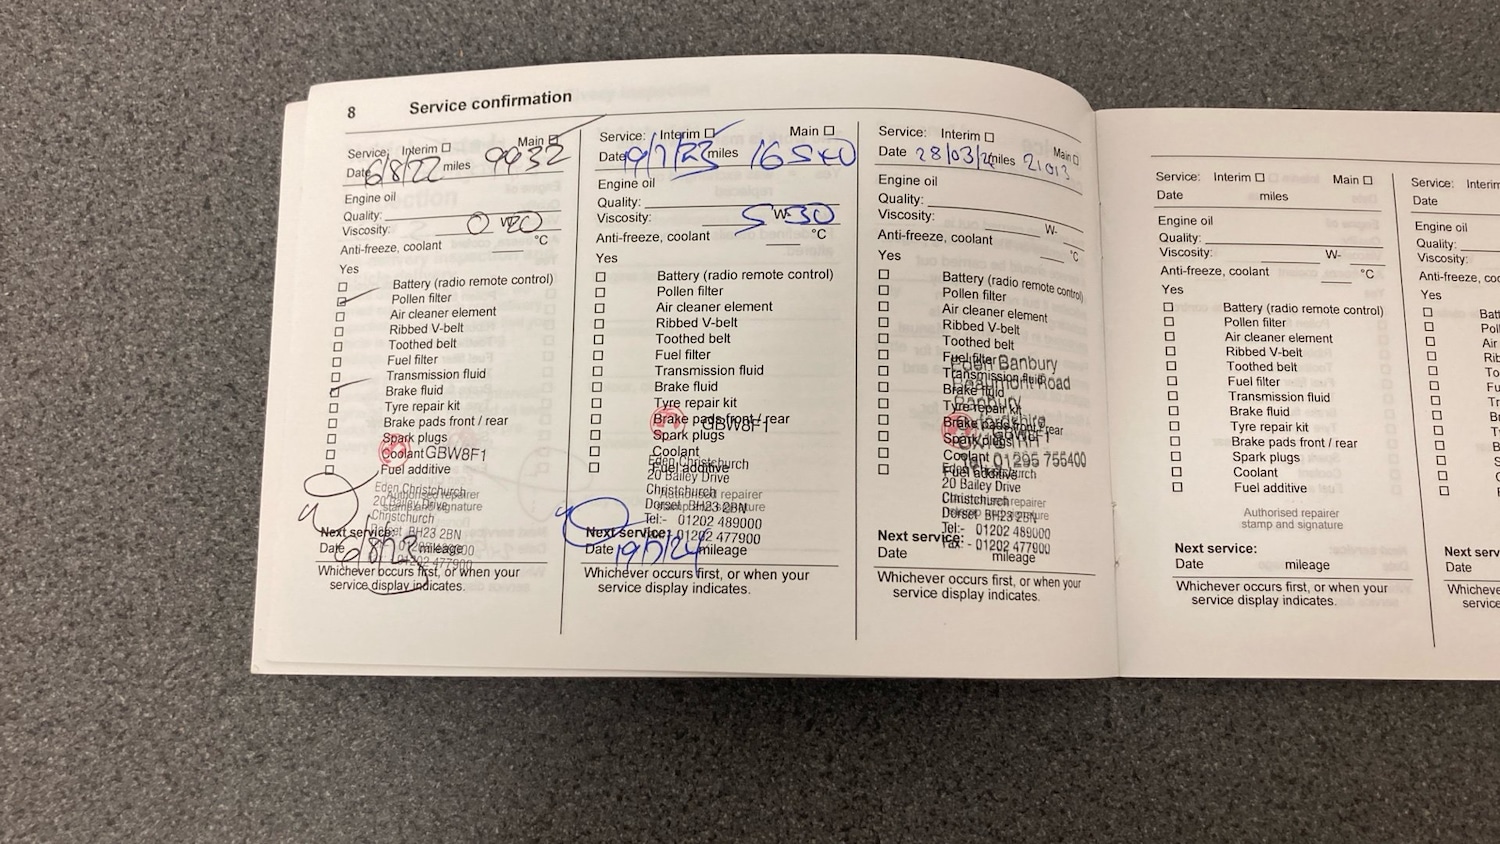 8 Service confirmation
Service: Interim Main
Date 6/8/22 miles 9932
Engine oil
Quality:
Viscosity: 0 W-20
Anti-freeze, coolant °C
Yes
Battery (radio remote control)
Pollen filter
Air cleaner element
Ribbed V-belt
Toothed belt
Fuel filter
Transmission fluid
Brake fluid
Tyre repair kit
Brake pads front / rear
Spark plugs
Coolant GBW8F1
Fuel additive
Eden Christchurch
Authorised repairer
20 Bailey Drive
stamp and signature
Christchurch
Dorset BH23 2BN
Next service:
Date 6/8/23 mileage
01202 477900
Whichever occurs first, or when your
service display indicates.
Service: Interim Main
Date 19/7/23 miles
Engine oil
Quality:
Viscosity: 5 W-30
Anti-freeze, coolant °C
Yes
Battery (radio remote control)
Pollen filter
Air cleaner element
Ribbed V-belt
Toothed belt
Fuel filter
Transmission fluid
Brake fluid
Tyre repair kit
Brake pads front / rear GBW8F1
Spark plugs
Coolant
Eden Christchurch
Fuel additive
20 Bailey Drive
Christchurch
Authorised repairer
Dorset BH23 2BN
stamp and signature
Tel:- 01202 489000
Next service:
Fax: - 01202 477900
Date 19/7/24 mileage
Whichever occurs first, or when your
service display indicates.
Service: Interim Main
Date 28/03/ miles 21013
Engine oil
Quality:
Viscosity: W-
Anti-freeze, coolant °C
Yes
Battery (radio remote control)
Pollen filter
Air cleaner element
Ribbed V-belt
Toothed belt
Fuel filter
Eden Banbury
Transmission fluid
Beaumont Road
Brake fluid
Banbury
Tyre repair kit
Brake pads front / rear
Spark plugs
GBW8F1
Coolant
Tel: 01295 755400
Fuel additive
Eden Christchurch
20 Bailey Drive
Christchurch
Authorised repairer
Dorset BH23 2BN
stamp and signature
Tel:- 01202 489000
Next service:
Fax: - 01202 477900
Date mileage
Whichever occurs first, or when your
service display indicates.
Service: Interim Main
Date miles
Engine oil
Quality:
Viscosity: W-
Anti-freeze, coolant °C
Yes
Battery (radio remote control)
Pollen filter
Air cleaner element
Ribbed V-belt
Toothed belt
Fuel filter
Transmission fluid
Brake fluid
Tyre repair kit
Brake pads front / rear
Spark plugs
Coolant
Fuel additive
Authorised repairer
stamp and signature
Next service:
Date mileage
Whichever occurs first, or when your
service display indicates.
Service: Interim
Date
Engine oil
Quality:
Viscosity:
Anti-freeze, coo
Yes
Batt
Poll
Air
Rib
To
Fu
Tr
B
T
B
S
C
F
Next serv
Date
Whicheve
service